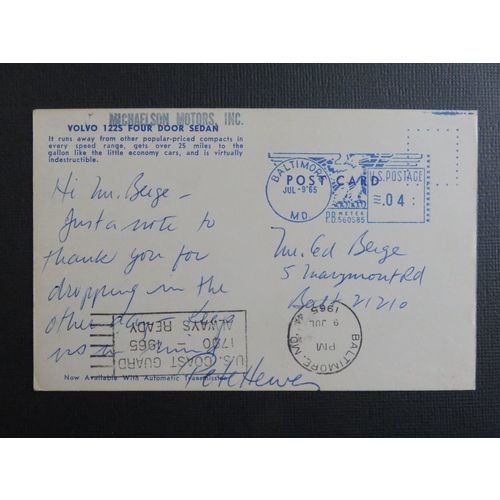 MICHAELSON MOTORS, INC.
VOLVO 122S FOUR DOOR SEDAN
It runs away from other popular-priced compacts in
every speed range, gets over 25 miles to the
gallon like the little economy cars, and is virtually
indestructible.
Hi Mr. Berge -
Just a note to
thank you for
dropping in the
other day - Keep
us in mind
Pete
Now Available With Automatic Transmission
U.S. COAST GUARD
1790 - 1965
ALWAYS READY
BALTIMORE
JUL-9'65
MD
POST CARD
U.S. POSTAGE
.04
PB METER
P.O. 560585
Mr. Ed Berge
5 Marymont Rd
Balt 21210
BALTIMORE, MD.
PM
9 JUL
1965